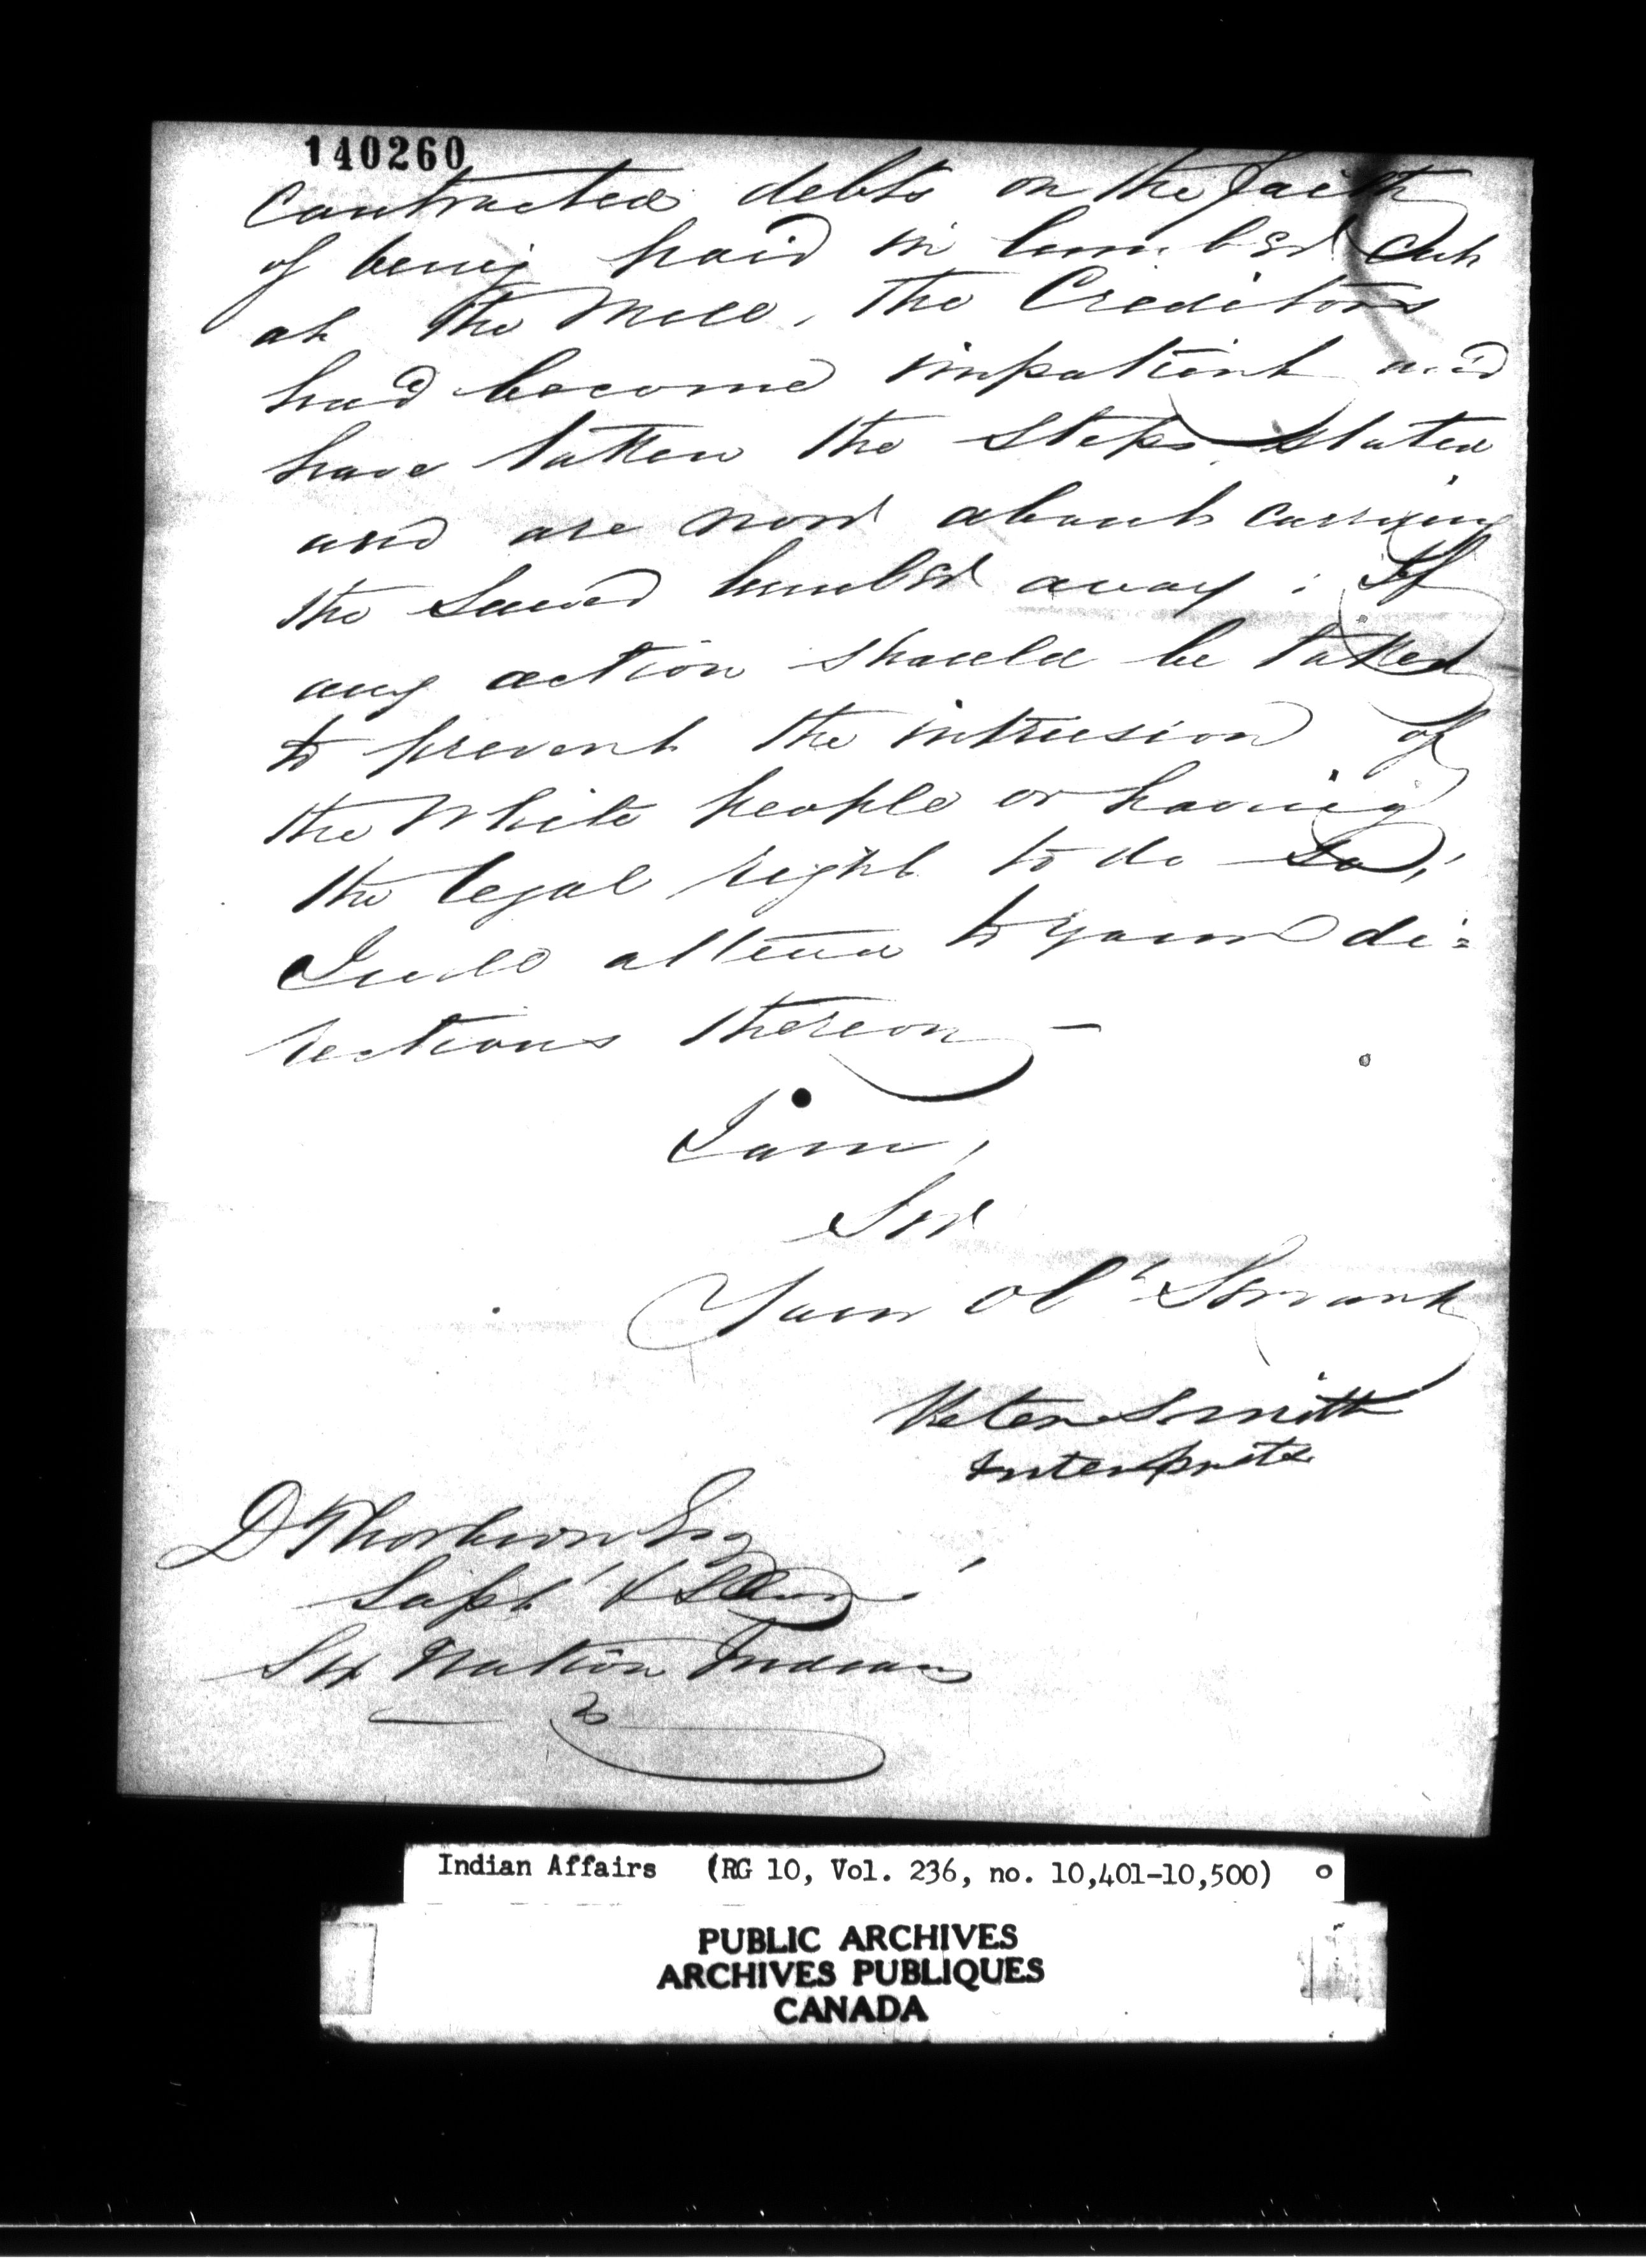 140260
contracted debts on the faith
of being paid in lumber cut
at the Mill, the Creditors
had become impatient and
have taken the steps stated
and are now about carrying
the sawed lumber away; If
any action should be taken
to prevent the intrusion of
the White people or having
the legal right to do so,
I will attend to your di=
rections thereon —
I am,
Sir
Your Obt Servant
Peter Smith
Interpreter
D Thorburn Esq
Supt
Six Nation Indians
Indian Affairs (RG 10, Vol. 236, no. 10,401-10,500)
PUBLIC ARCHIVES
ARCHIVES PUBLIQUES
CANADA